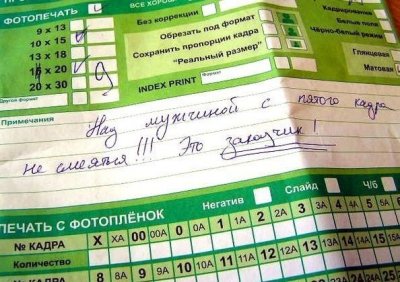 ВСЕ ХОРОШ
ФОТОПЕЧАТЬ
9 x 13
10 x 15
13 x 18
15 x 20
20 x 30
Другой формат
Без коррекции
Обрезать под формат
Сохранить пропорции кадра
"Реальный размер"
INDEX PRINT
Кадрирование
Белые поля
Чёрно-белый режим
Глянцевая
Матовая
Примечания
Над мужчиной с пятого кадра
не смеяться!!! Это заказчик!
ПЕЧАТЬ С ФОТОПЛЁНОК
Негатив Слайд Ч/б
№ КАДРА X XA 00 00A 0 0A 1 1A 2 2A 3 3A 4 4A 5 5A 6
Количество
№ КАДРА 8 8A 9 9A 10 10A 11 11A 12 12A 13 13A 14 14A 15